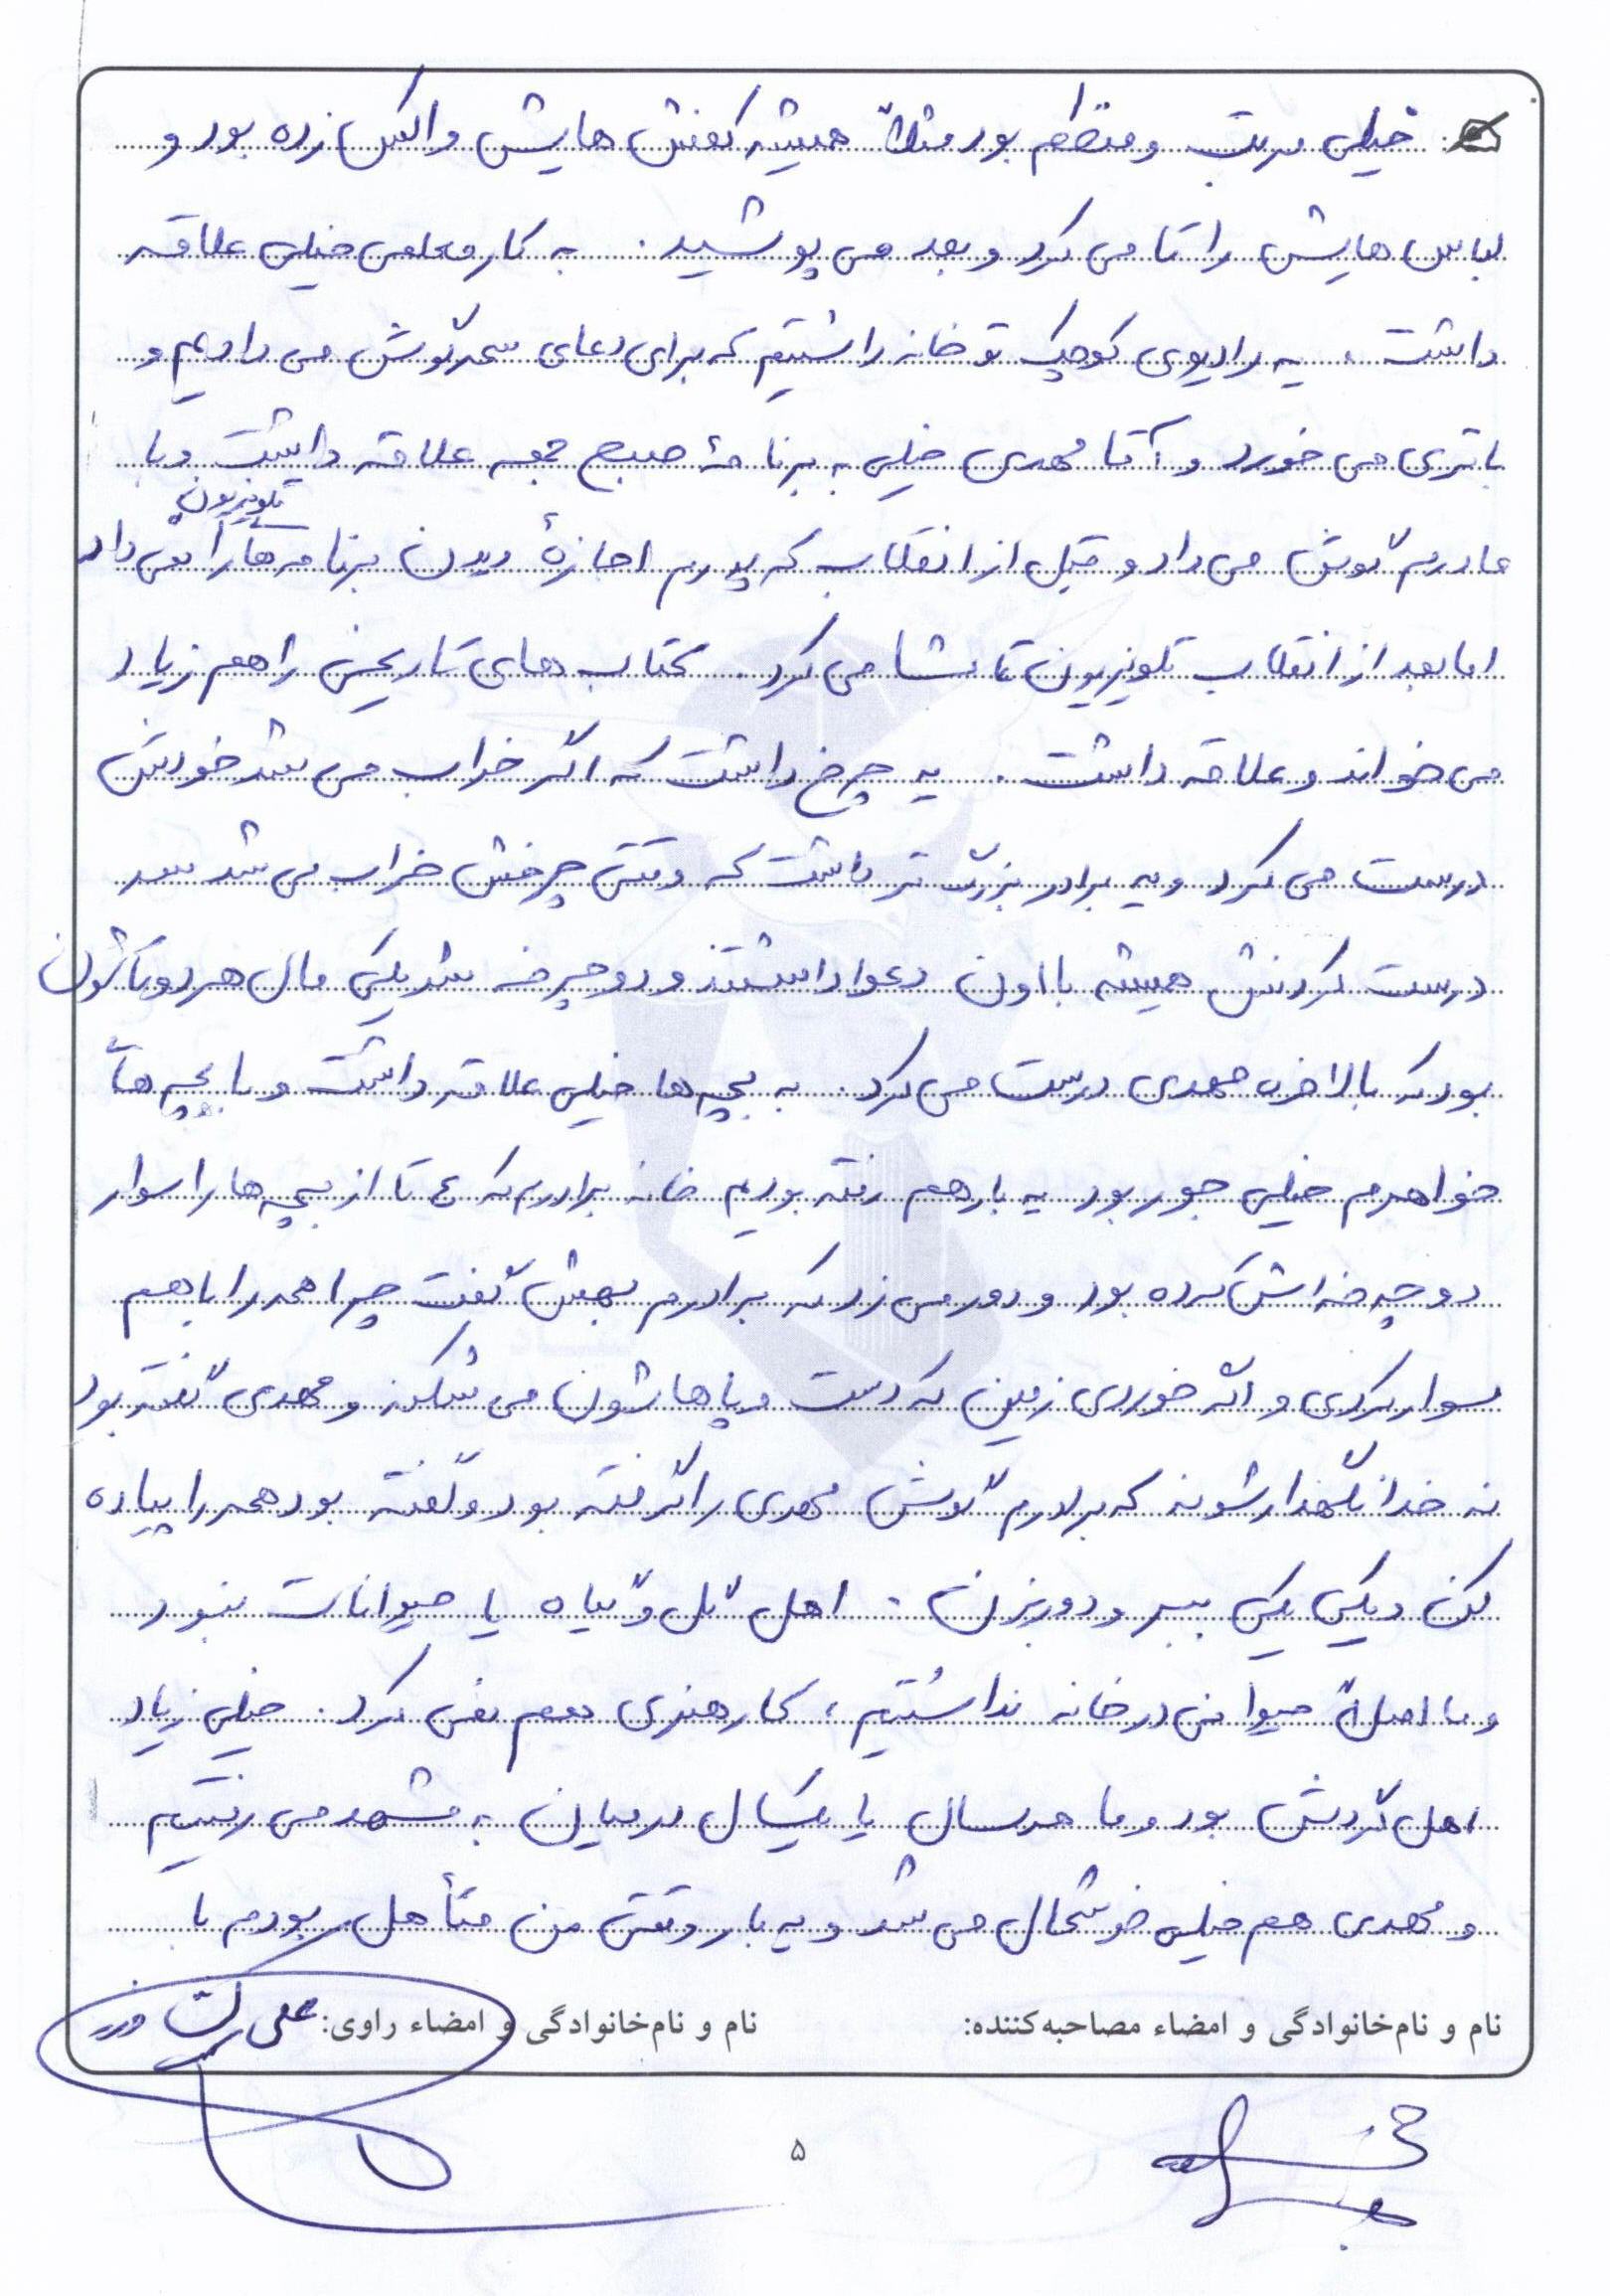 خیلی مرتب و منظم بود مثلاً همیشه کفش هایش واکس زده بود و
لباس هایش را تا می کرد و بعد می پوشید. به کار معلمی خیلی علاقه
داشت، یه رادیوی کوچک تو خانه داشتیم که برای دعای سحر گوش می دادیم و
باتری می خورد و آقا مهدی خیلی به برنامۀ صبح جمعه علاقه داشت و با
مادرم گوش می داد و قبل از انقلاب که پدرم اجازۀ دیدن برنامه ها تلویزیون را نمی داد
اما بعد از انقلاب تلویزیون تماشا می کرد. کتاب های تاریخی را هم زیاد
می خواند و علاقه داشت. یه چرخ داشت که اگر خراب می شد خودش
درست می کرد و یه برادر بزرگ تر داشت که وقتی چرخش خراب می شد سر
درست کردنش همیشه با اون دعوا داشتند و دوچرخه شریکی مال هر دوتاشون
بود که بالاخره مهدی درست می کرد. به بچه ها خیلی علاقه داشت و با بچه های
خواهرم خیلی جور بود یه بار هم رفته بودیم خانه برادرم که ٤ تا از بچه ها را سوار
دوچرخه اش کرده بود و دور می زد که برادرم بهش گفت چرا همه را با هم
سوار کردی و اگه خوردی زمین که دست و پاهاشون می شکنه و مهدی گفته بود
نه خدا نگهدارشونه که برادرم گوش مهدی را گرفته بود و گفته بود همه را پیاده
کن و یکی یکی ببر و دور بزن. اهل گل و گیاه یا حیوانات نبود
و ما اصلاً حیوانی در خانه نداشتیم، کار هنری هم نمی کرد. خیلی زیاد
اهل گردش بود و ما هر سال یا یکسال در میان به مشهد می رفتیم
و مهدی هم خیلی خوشحال می شد و یه بار وقتی من متأهل بودم با
نام و نام‌خانوادگی و امضاء مصاحبه‌کننده: نام و نام‌خانوادگی و امضاء راوی: علی
۵